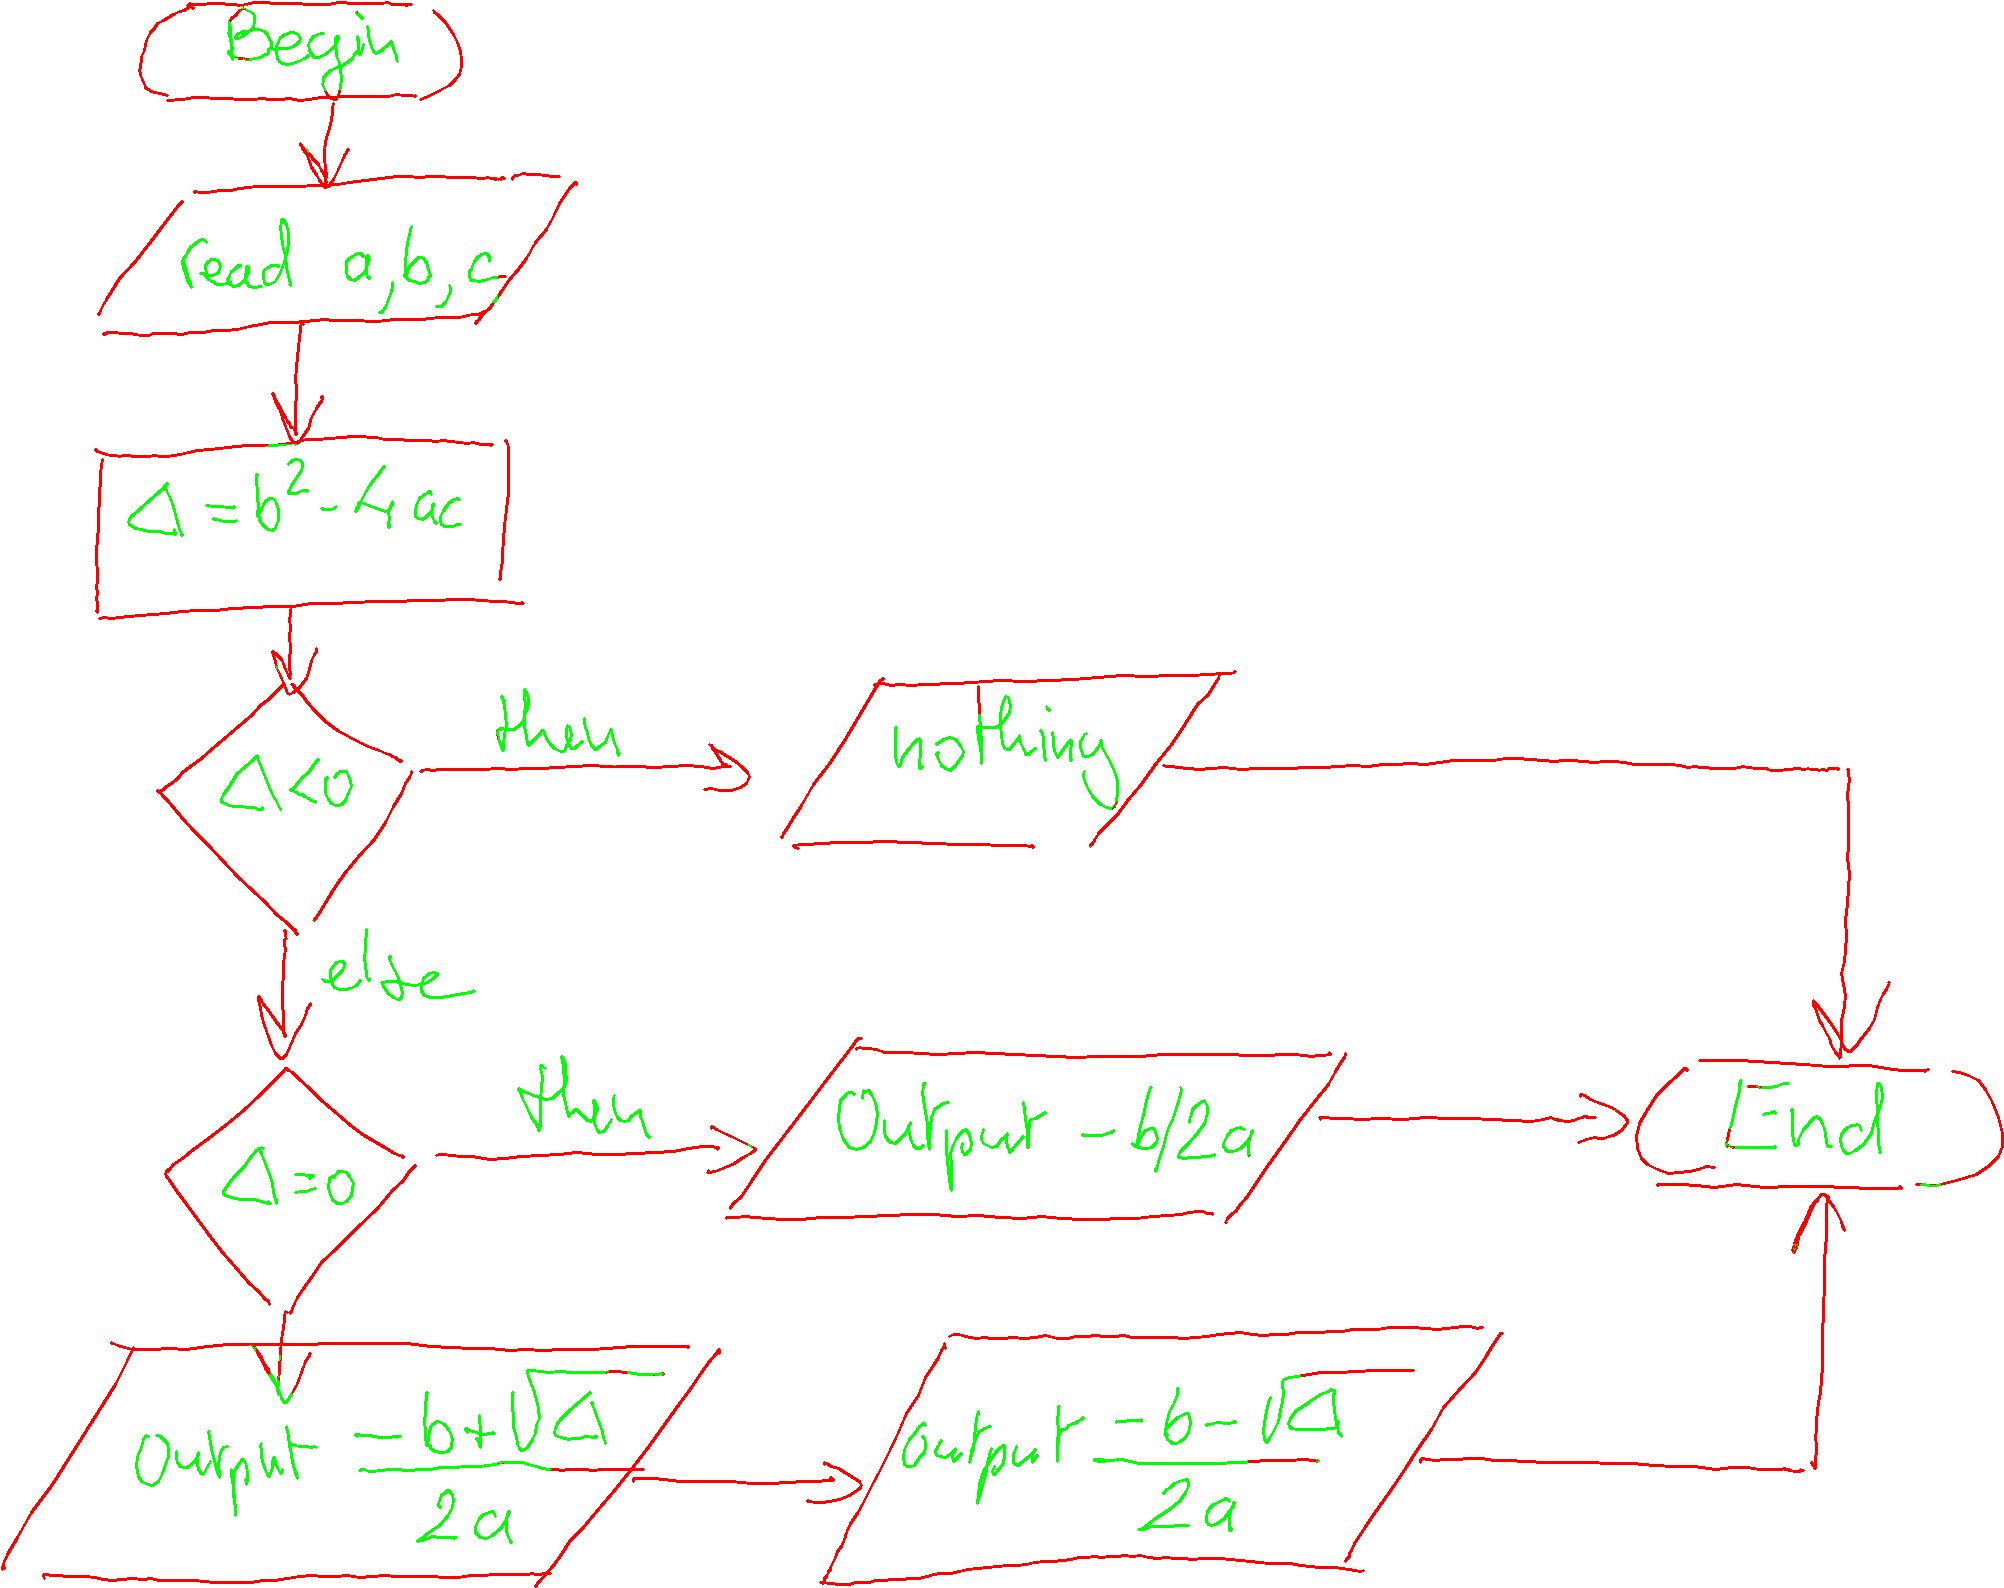 Begin
read a,b,c
Δ = b² - 4ac
Δ<0
then
nothing
else
Δ=0
then
Output - b/2a
End
Output (-b+√Δ)/2a
output (-b-√Δ)/2a